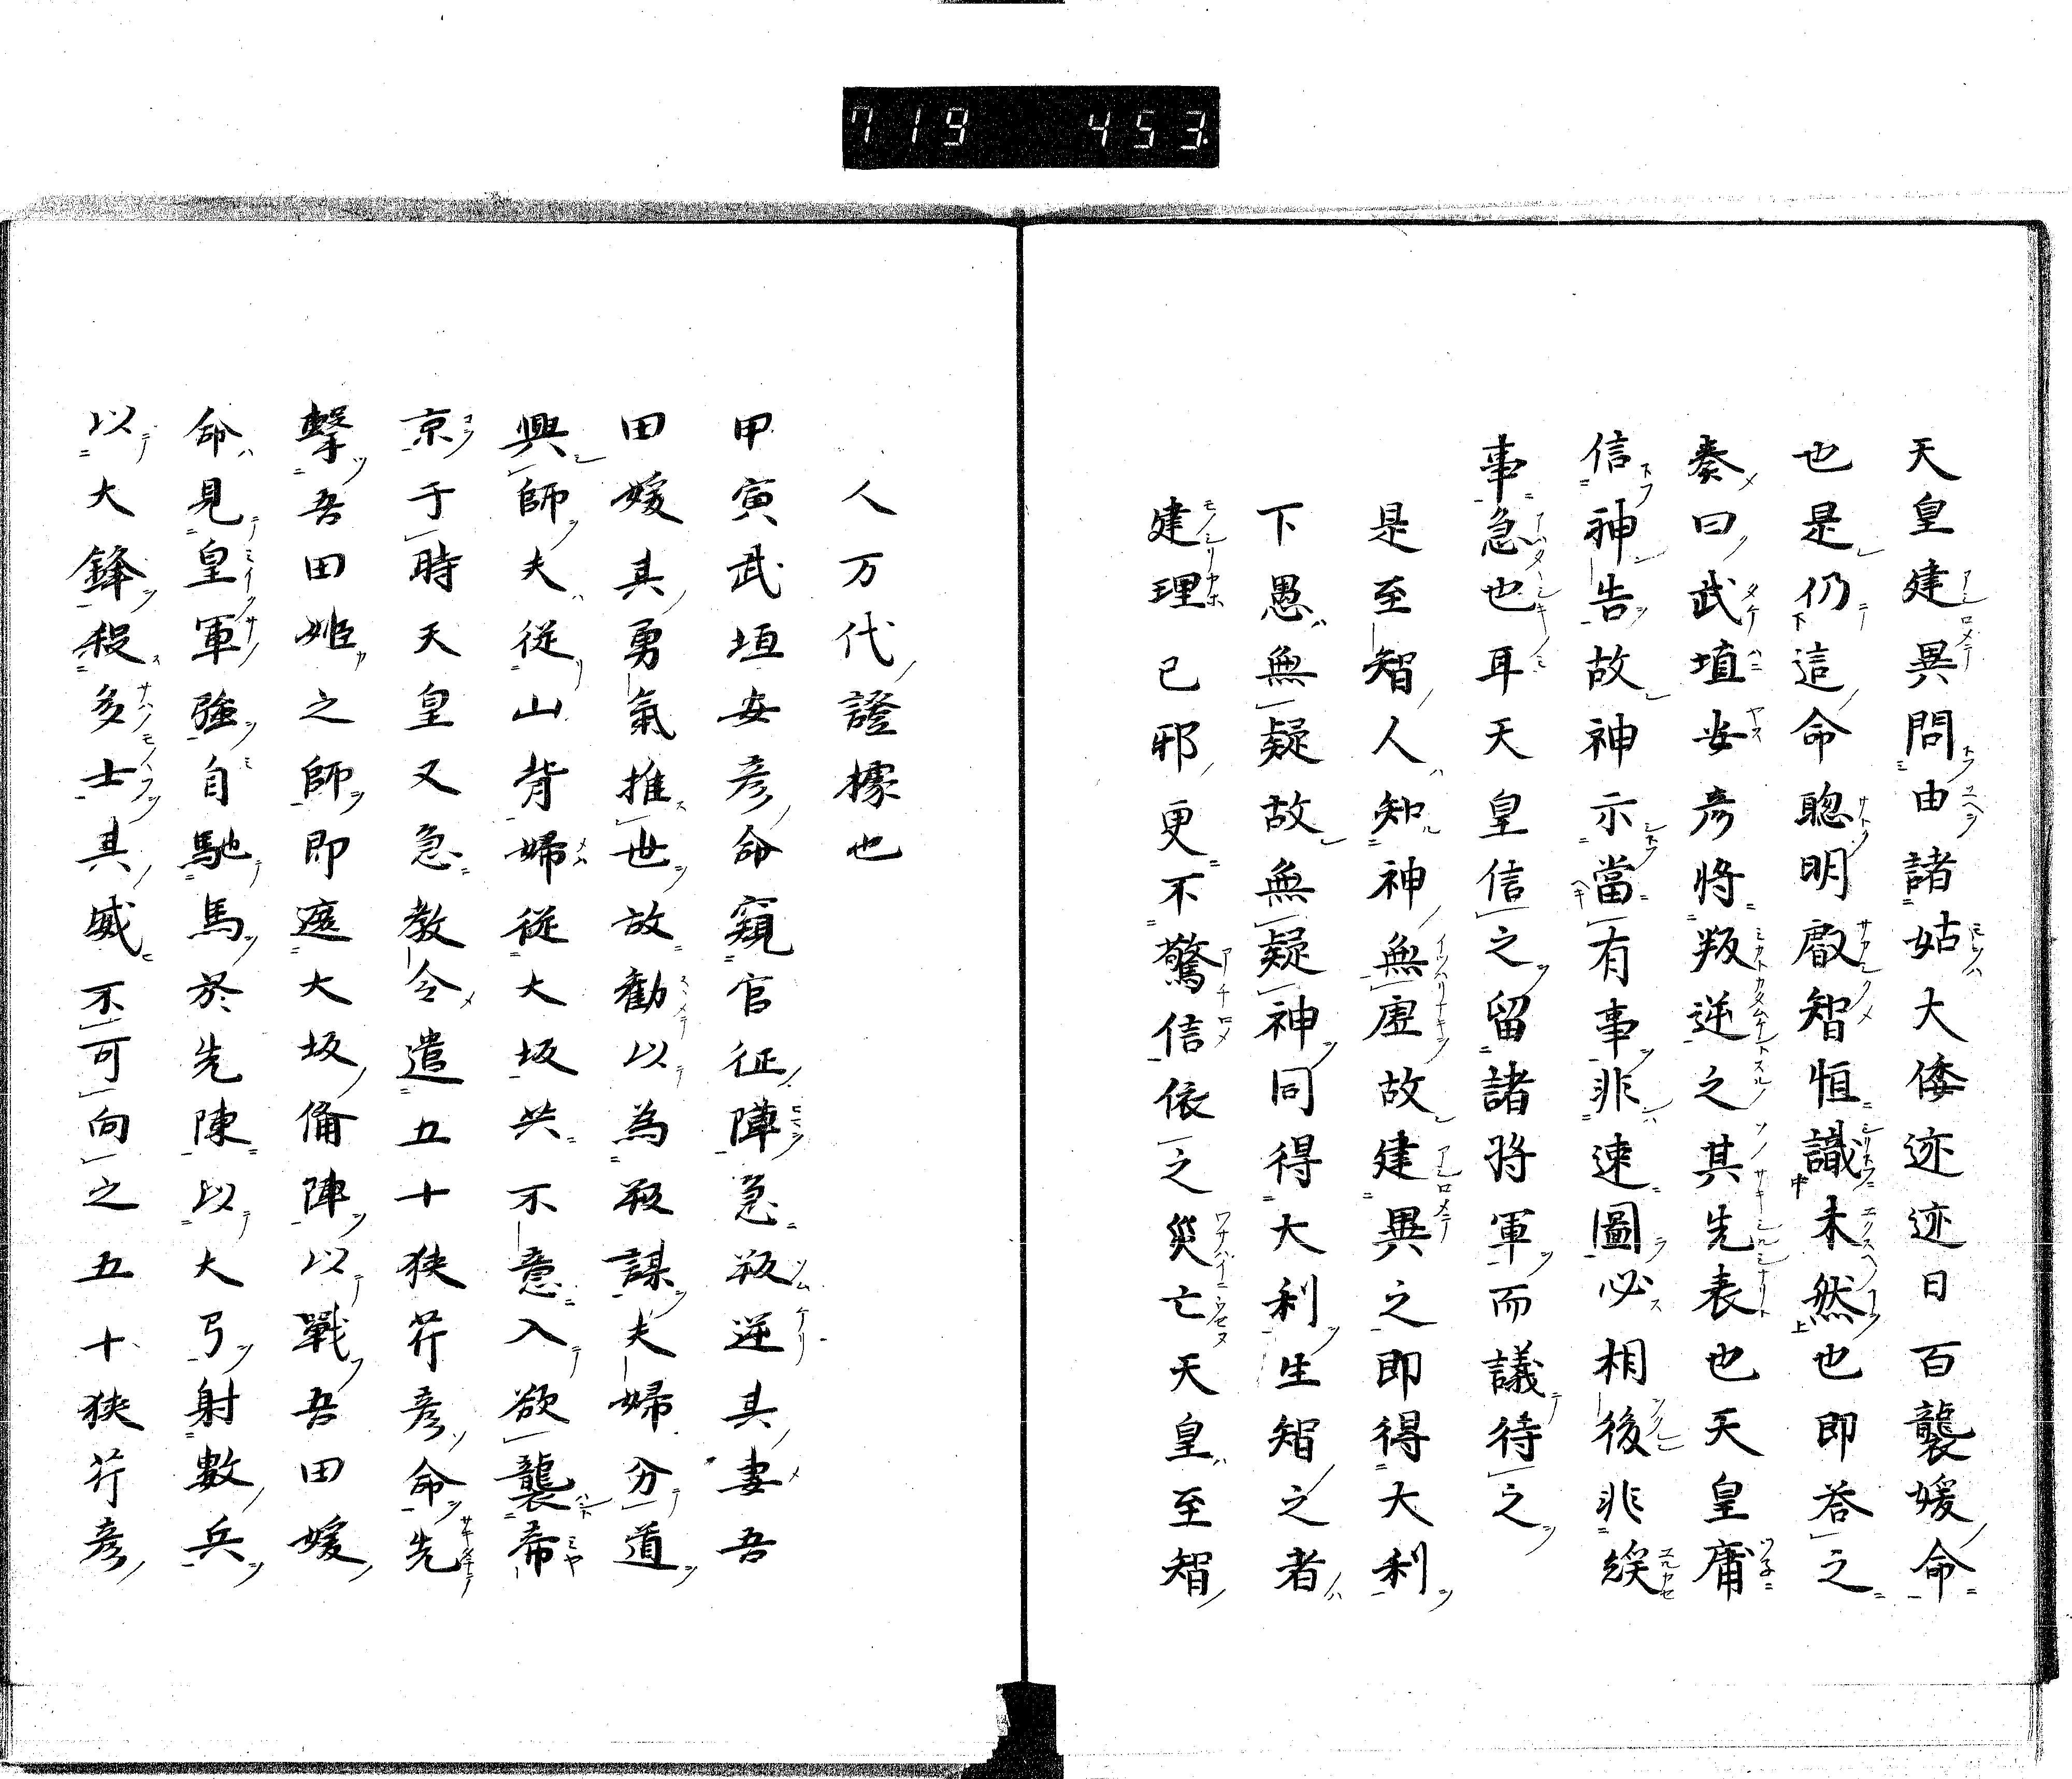 719 453
天皇建異問由諸姑大倭迹迹日百襲媛命
也是仍這命聰明叡智恒識未然也即荅之
奏曰武埴安彦将叛逆之其先表也天皇庸
信神告故神示當有事非速圖必相後非緩
事急也耳天皇信之留諸将軍而議待之
是至智人知神無虚故建異之即得大利
下愚無疑故無疑神同得大利生智之者
建理已邪更不驚信依之災亡天皇至智
人万代證據也
甲寅武垣安彦命窺官征陣急叛逆其妻吾
田媛其勇氣推世故勸以為叛謀夫婦分道
興師夫從山背婦從大坂共不意入欲襲帝
京于時天皇又急教令遣五十狹芹彦命先
擊吾田姫之師即遮大坂備陣以戰吾田媛
命見皇軍強自馳馬於先陳以大弓射數兵
以大鋒殺多士其威不可向之五十狹芹彦